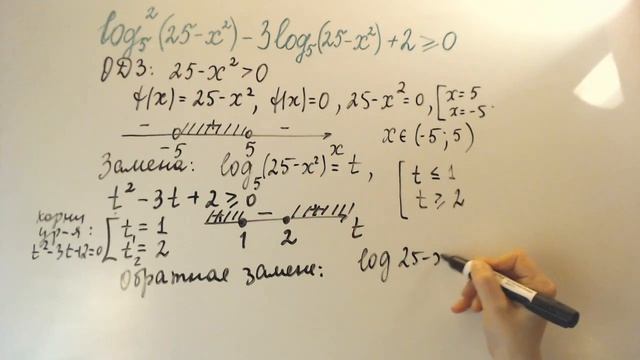 log₅²(25-x²)-3log₅(25-x²)+2⩾0
ОДЗ: 25-x²>0
f(x)=25-x², f(x)=0, 25-x²=0, [x=5 x=-5.
- + -
-5 5 x
x∈(-5;5)
Замена: log₅(25-x²)=t,
[t⩽1
t⩾2
t²-3t+2⩾0
корни
ур-я:
t²-3t+2=0
[t₁=1
t₂=2
+ - +
1 2 t
Обратная замена: log 25-x